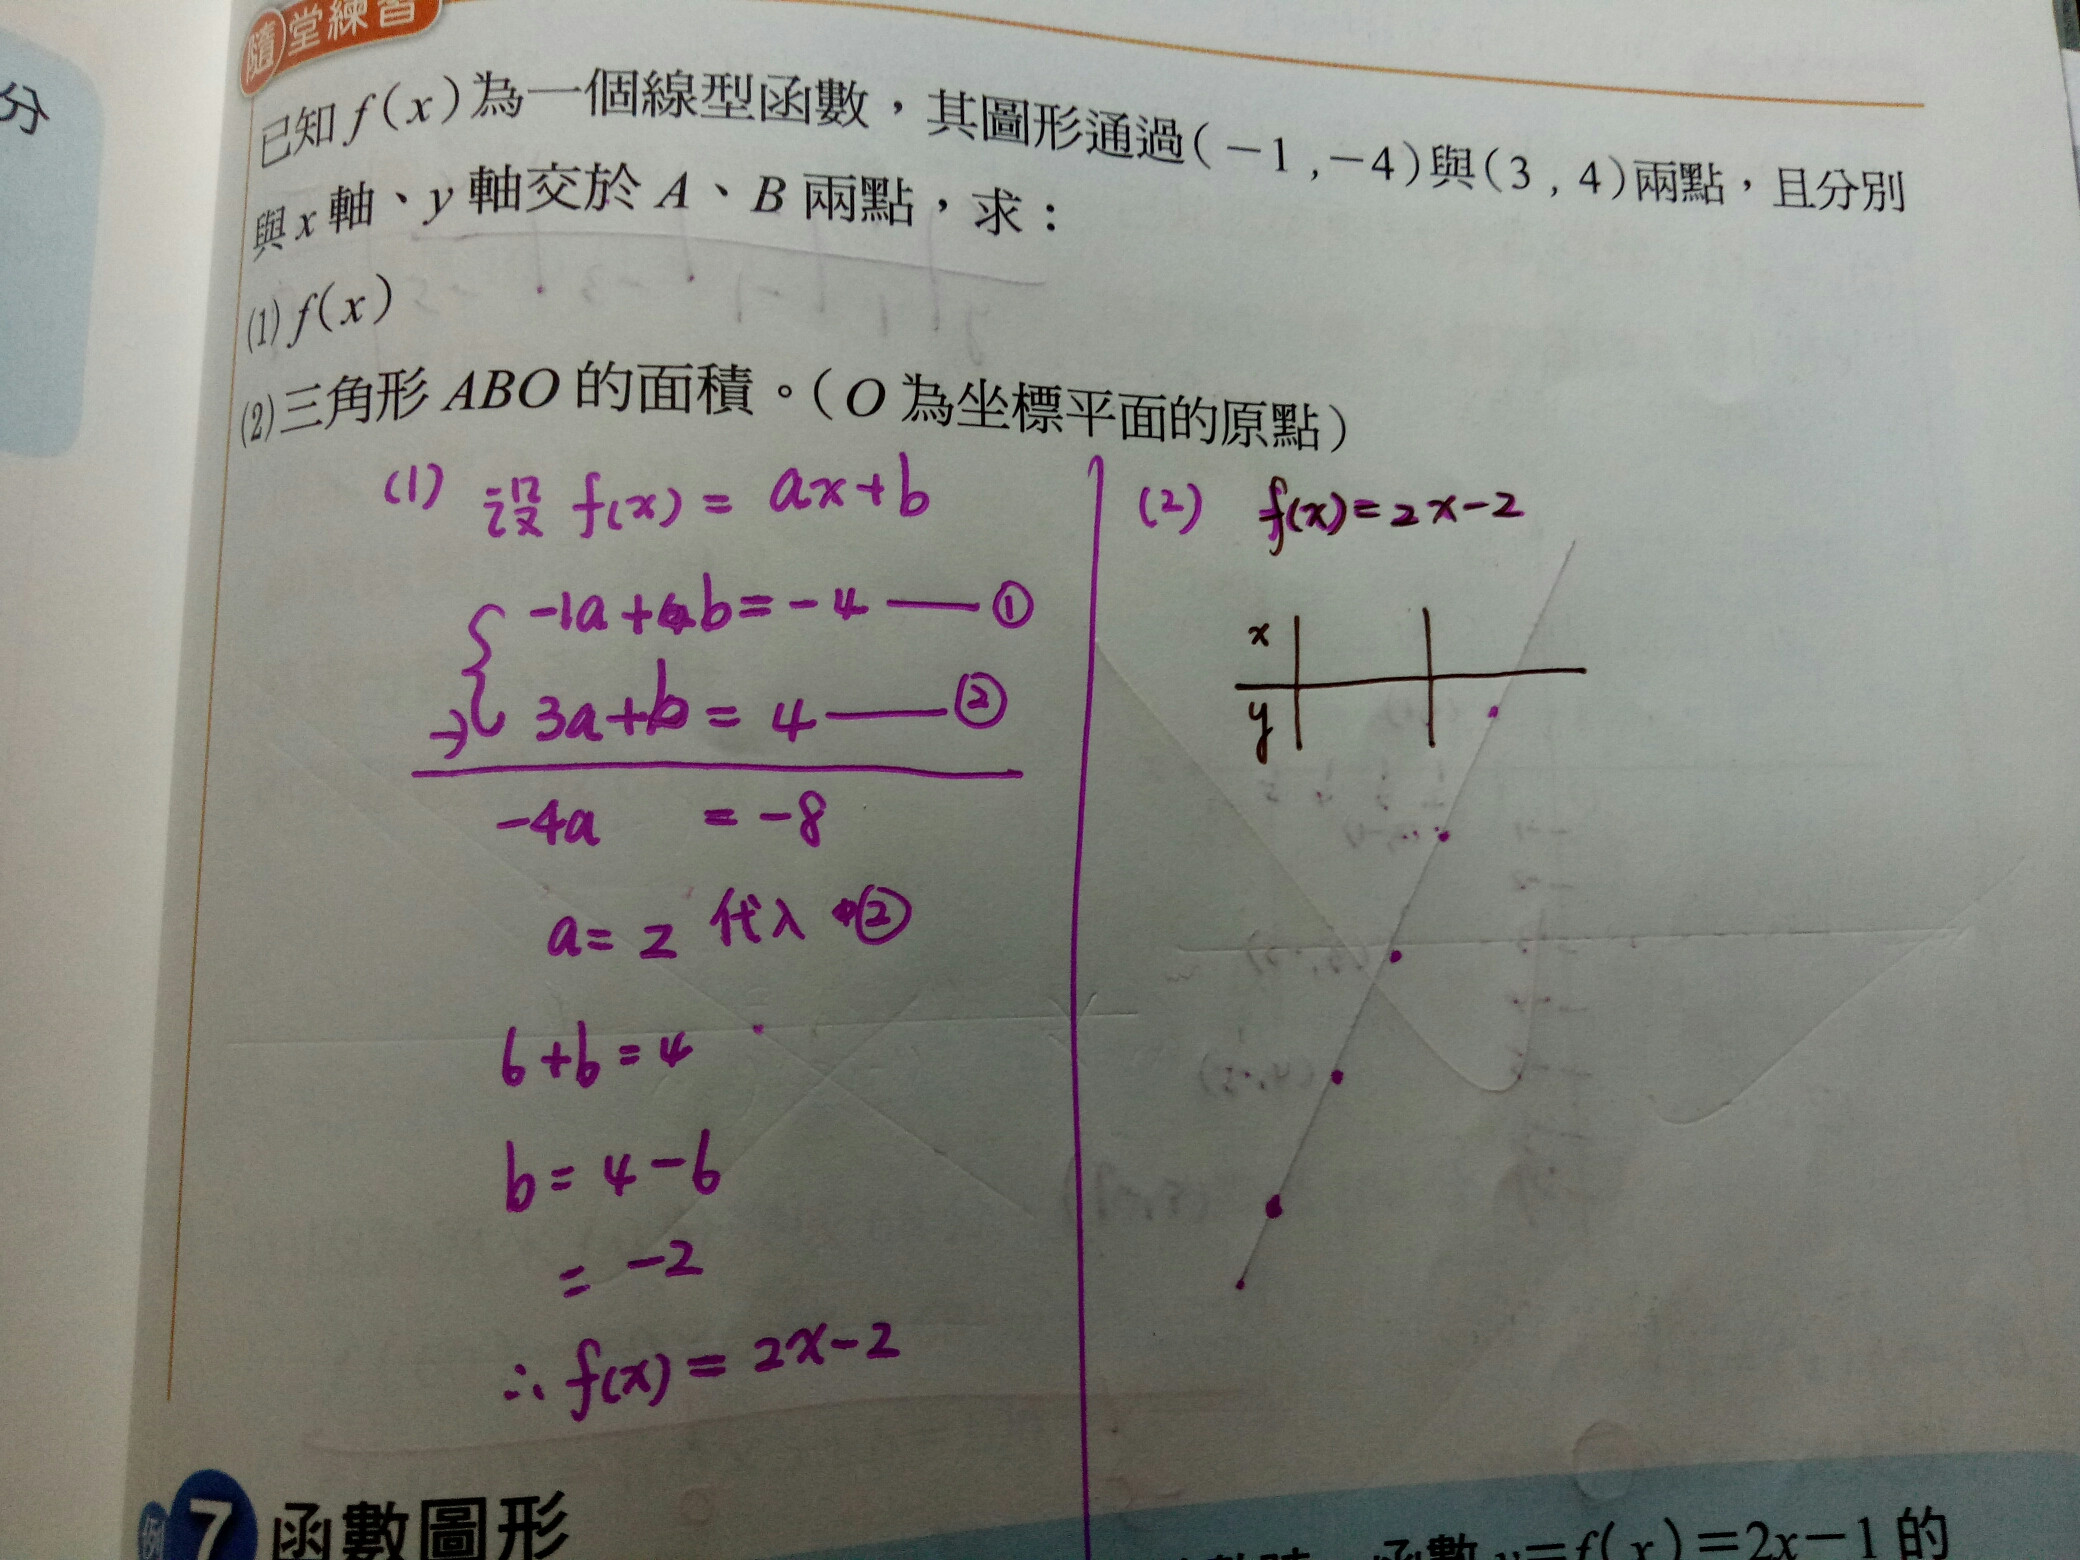 分
隨堂練習
已知f(x)為一個線型函數，其圖形通過(-1,-4)與(3,4)兩點，且分別
與x軸、y軸交於A、B兩點，求：
(1)f(x)
(2)三角形ABO的面積。(O為坐標平面的原點)
(1) 設 f(x) = ax+b
-1a+b=-4 —— ①
-) 3a+b=4 —— ②
-4a = -8
a=2 代入②
6+b=4
b=4-6
= -2
∴ f(x) = 2x-2
(2) f(x)=2x-2
x
y
例 7 函數圖形
函數 y=f(x)=2x-1的